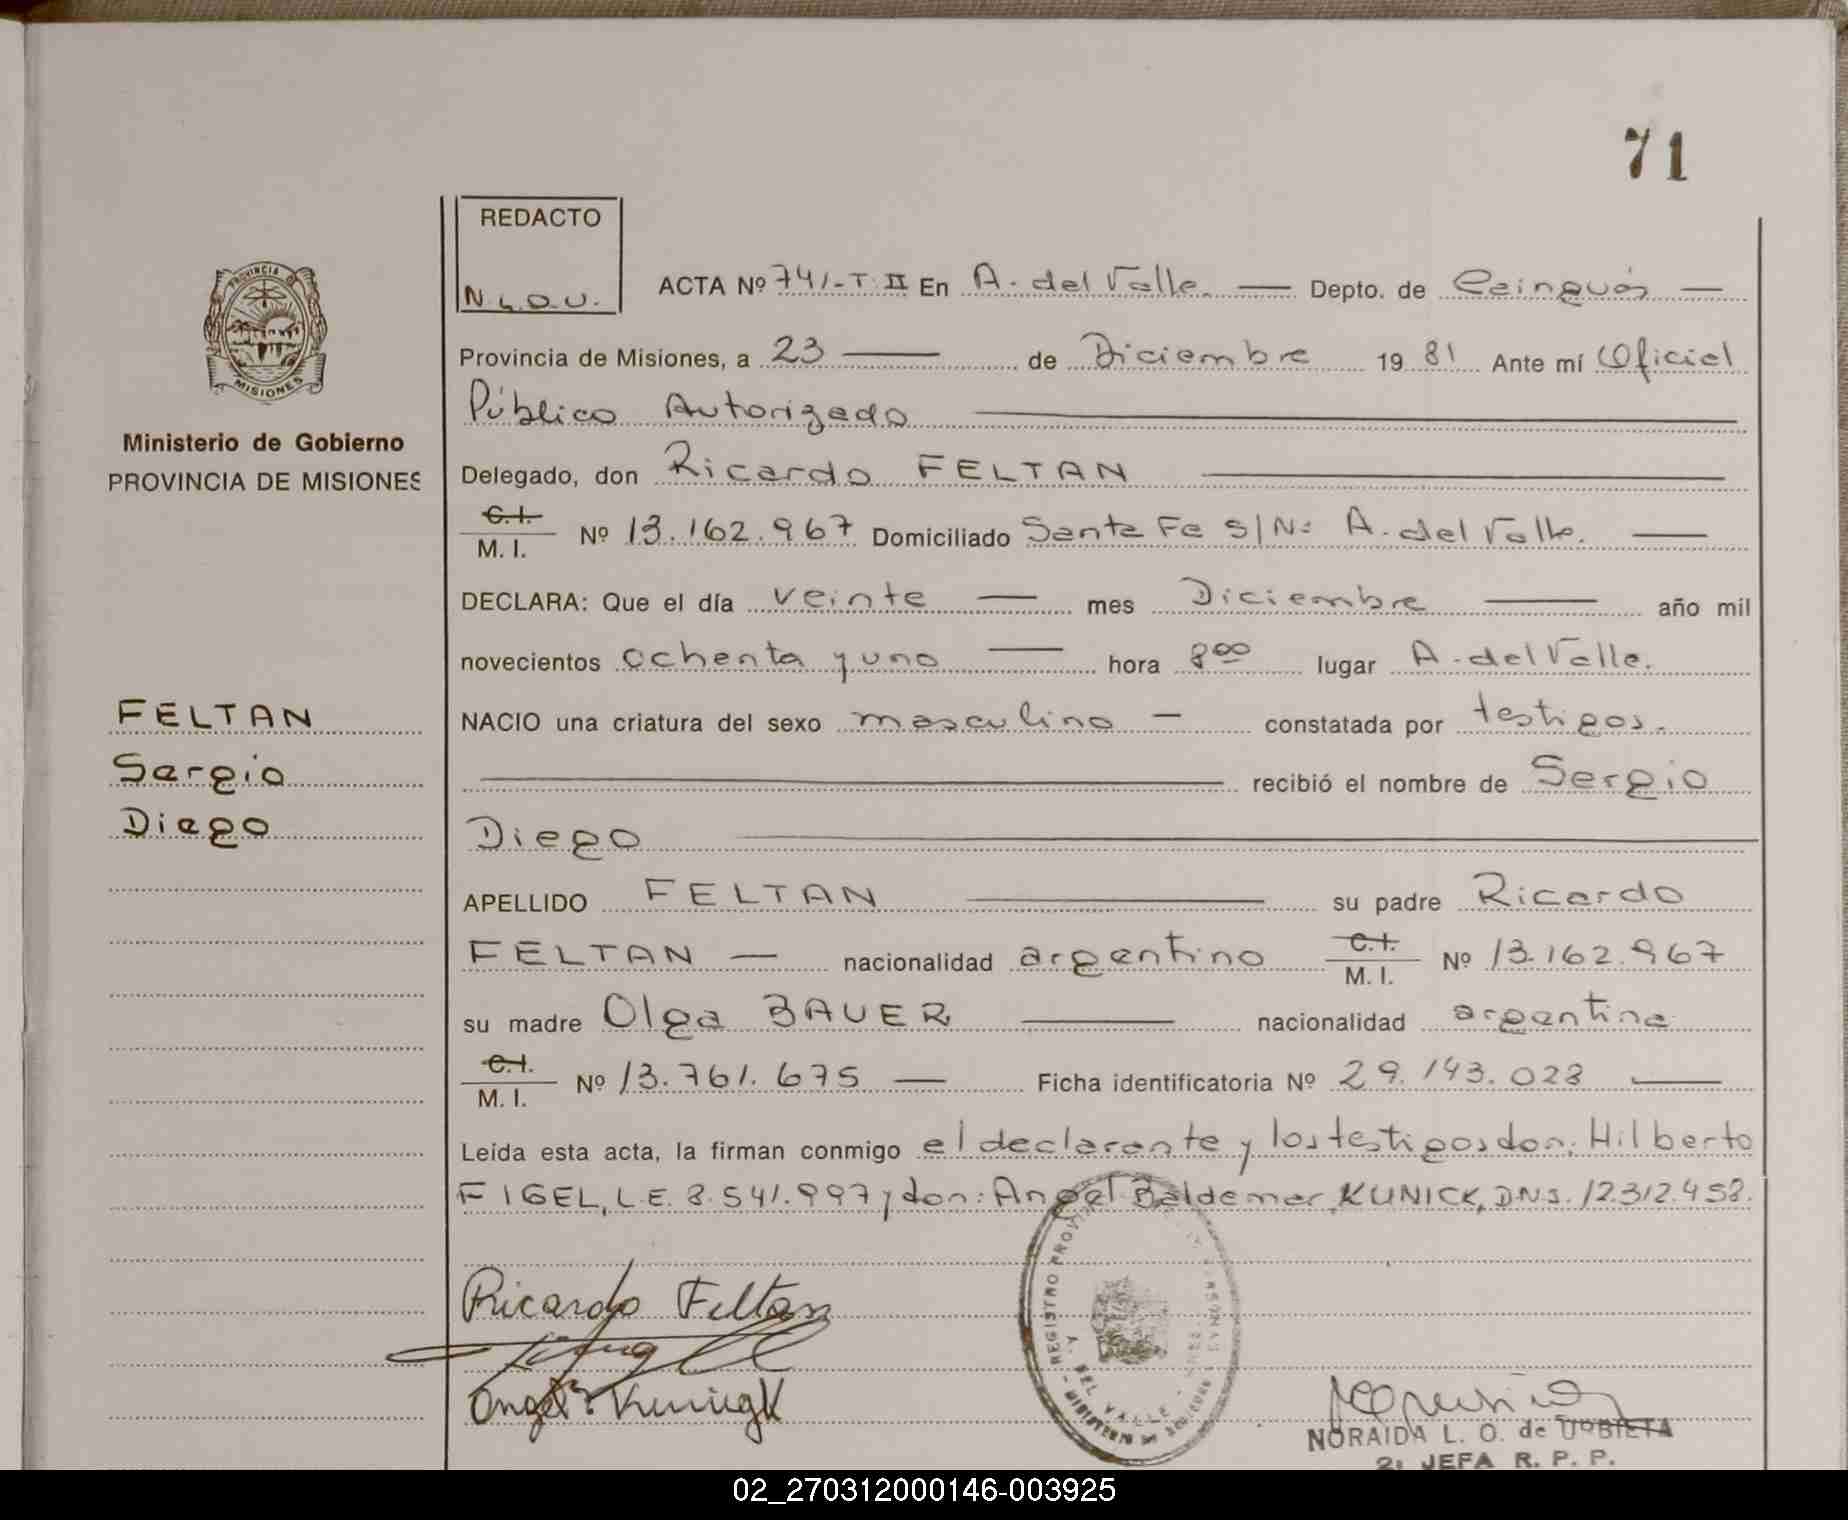 71
REDACTO
N.L.O.U.
ACTA Nº 741-T.II En A. del Valle. Depto. de Cainguás
Provincia de Misiones, a 23 de Diciembre 1981 Ante mí Oficial
Público Autorizado
PROVINCIA DE MISIONES
Ministerio de Gobierno
PROVINCIA DE MISIONES
Delegado, don Ricardo FELTAN
C.I. M.I. Nº 13.162.967 Domiciliado Santa Fe S/Nº A. del Valle.
DECLARA: Que el día veinte mes Diciembre año mil
novecientos ochenta y uno hora 8 00 lugar A. del Valle.
FELTAN
Sergio
Diego
NACIO una criatura del sexo masculino constatada por testigos.
recibió el nombre de Sergio
Diego
APELLIDO FELTAN su padre Ricardo
FELTAN nacionalidad argentino C.I. M.I. Nº 13.162.967
su madre Olga BAUER nacionalidad argentina
C.I. M.I. Nº 13.761.675 Ficha identificatoria Nº 29.143.028
Leída esta acta, la firman conmigo el declarante y los testigos don: Hilberto
FIGEL, L.E. 8.541.997 y don: Angel Baldemar KUNICK, DNI. 12.312.458.
Ricardo Feltan
Angel B. Kunigk
REGISTRO PROVINCIAL
DEL VALLE
NORAIDA L. O. de URBIETA
2ª JEFA R. P. P.
02_270312000146-003925